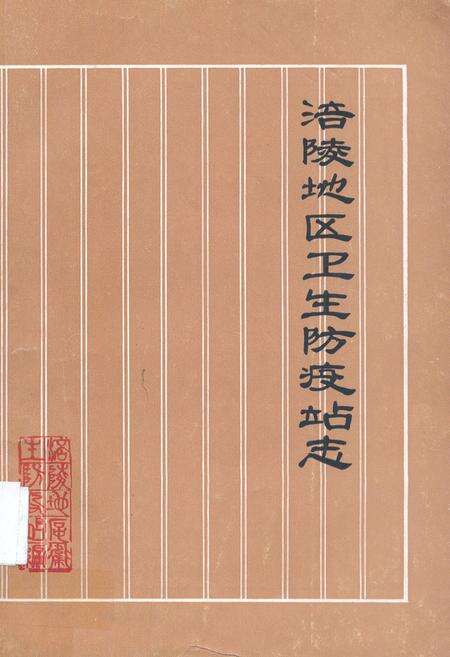 涪陵地区卫生防疫站志
涪陵地区衛
生防疫站编